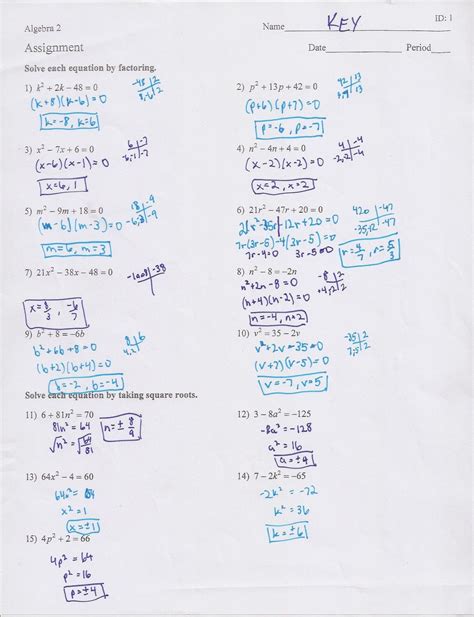 Algebra 2
Name KEY
ID: 1
Assignment
Date Period
Solve each equation by factoring.
1) k² + 2k − 48 = 0
-48 | 2
8, -6 | 2
(k+8)(k-6)=0
k=-8, k=6
2) p² + 13p + 42 = 0
42 | 13
(p+6)(p+7)=0
p=-6, p=-7
3) x² − 7x + 6 = 0
6 | -7
-6, -1 | -7
(x-6)(x-1)=0
x=6, 1
4) n² − 4n + 4 = 0
4 | -4
-2, -2 | -4
(x-2)(x-2)=0
x=2, x=2
5) m² − 9m + 18 = 0
18 | -9
-6, -3 | -9
(m-6)(m-3)=0
m=6, m=3
6) 21r² − 47r + 20 = 0
420 | -47
-35, -12 | -47
21r²-35r-12r+20=0
7r(3r-5)-4(3r-5)=0
7r-4=0 3r-5=0
r=4/7, r=5/3
7) 21x² − 38x − 48 = 0
-1008 | -38
x=8/3, -6/7
8) n² − 8 = −2n
-8 | 2
+4, -2 | 2
n²+2n-8=0
(n+4)(n-2)=0
n=-4, n=2
9) b² + 8 = −6b
8 | 6
4, 2 |
b²+6b+8=0
(b+2)(b+4)=0
b=-2, b=-4
10) v² = 35 − 2v
-35 | 2
7, -5 | 2
v²+2v-35=0
(v+7)(v-5)=0
v=-7, v=5
Solve each equation by taking square roots.
11) 6 + 81n² = 70
81n²=64
√n²=√64/81
n=±8/9
12) 3 − 8a² = −125
-8a²=-128
a²=16
a=±4
13) 64x² − 4 = 60
64x²=64
x²=1
x=±1
14) 7 − 2k² = −65
-2k²=-72
k²=36
k=±6
15) 4p² + 2 = 66
4p²=64
p²=16
p=±4